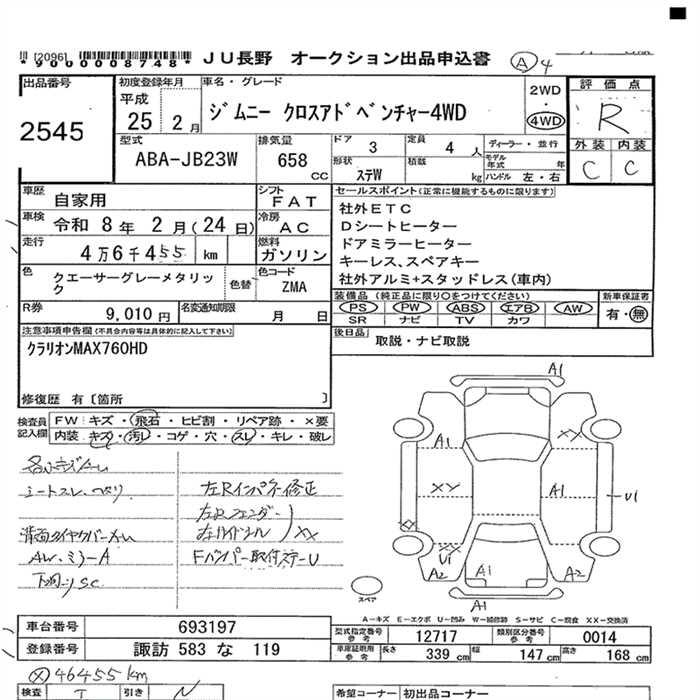 [2096]
*9000008748*
JU長野 オークション出品申込書
A 4
出品番号
2545
初度登録年月
平成
25 2月
車名・グレード
ジムニー クロスアドベンチャー4WD
2WD
・
4WD
評価点
R
外装 内装
C C
型式
ABA-JB23W
排気量
658
cc
ドア 3
定員 4人
形状 ステW
積載 kg
ディーラー・並行
モデル年式 年
ハンドル 左・右
車歴
自家用
シフト
FAT
車検
令和 8年 2月(24日)
冷房
AC
走行
4万6千455 km
燃料
ガソリン
色
クエーサーグレーメタリック
色替
色コード
ZMA
R券
9,010円
名変通知期限
月 日
セールスポイント(正常に機能するものに限ります)
社外ETC
Dシートヒーター
ドアミラーヒーター
キーレス、スペアキー
社外アルミ+スタッドレス(車内)
装備品 (純正品に限り○をつけてください)
PS PW ABS エアB AW
SR ナビ TV カワ
新車保証書
有・無
後日品
取説・ナビ取説
注意事項申告欄(不具合内容等は具体的に記入して下さい)
クラリオンMAX760HD
修復歴 有〔箇所 〕
検査員記入欄
FW:キズ・飛石・ヒビ割・リペア跡・×要
内装:キズ・汚レ・コゲ・穴・スレ・キレ・破レ
AW、ミラーA
下回りSC
左Rインパネ修正
左Rフェンダー
XX
Fバンパー取付ステーU
A1
A1
XX
XY
A1
U1
XX
U1
A2
A1
A2
A1
スペア
A-キズ E-エクボ U-凹み W-補修跡 S-サビ C-腐食 XX-交換済
車台番号
693197
登録番号
諏訪 583 な 119
型式指定番号 参考
12717
類別区分番号 参考
0014
車庫証明用 参考
長さ 339 cm
幅 147 cm
高さ 168 cm
× 46455km
検査 T
引き N
希望コーナー
初出品コーナー